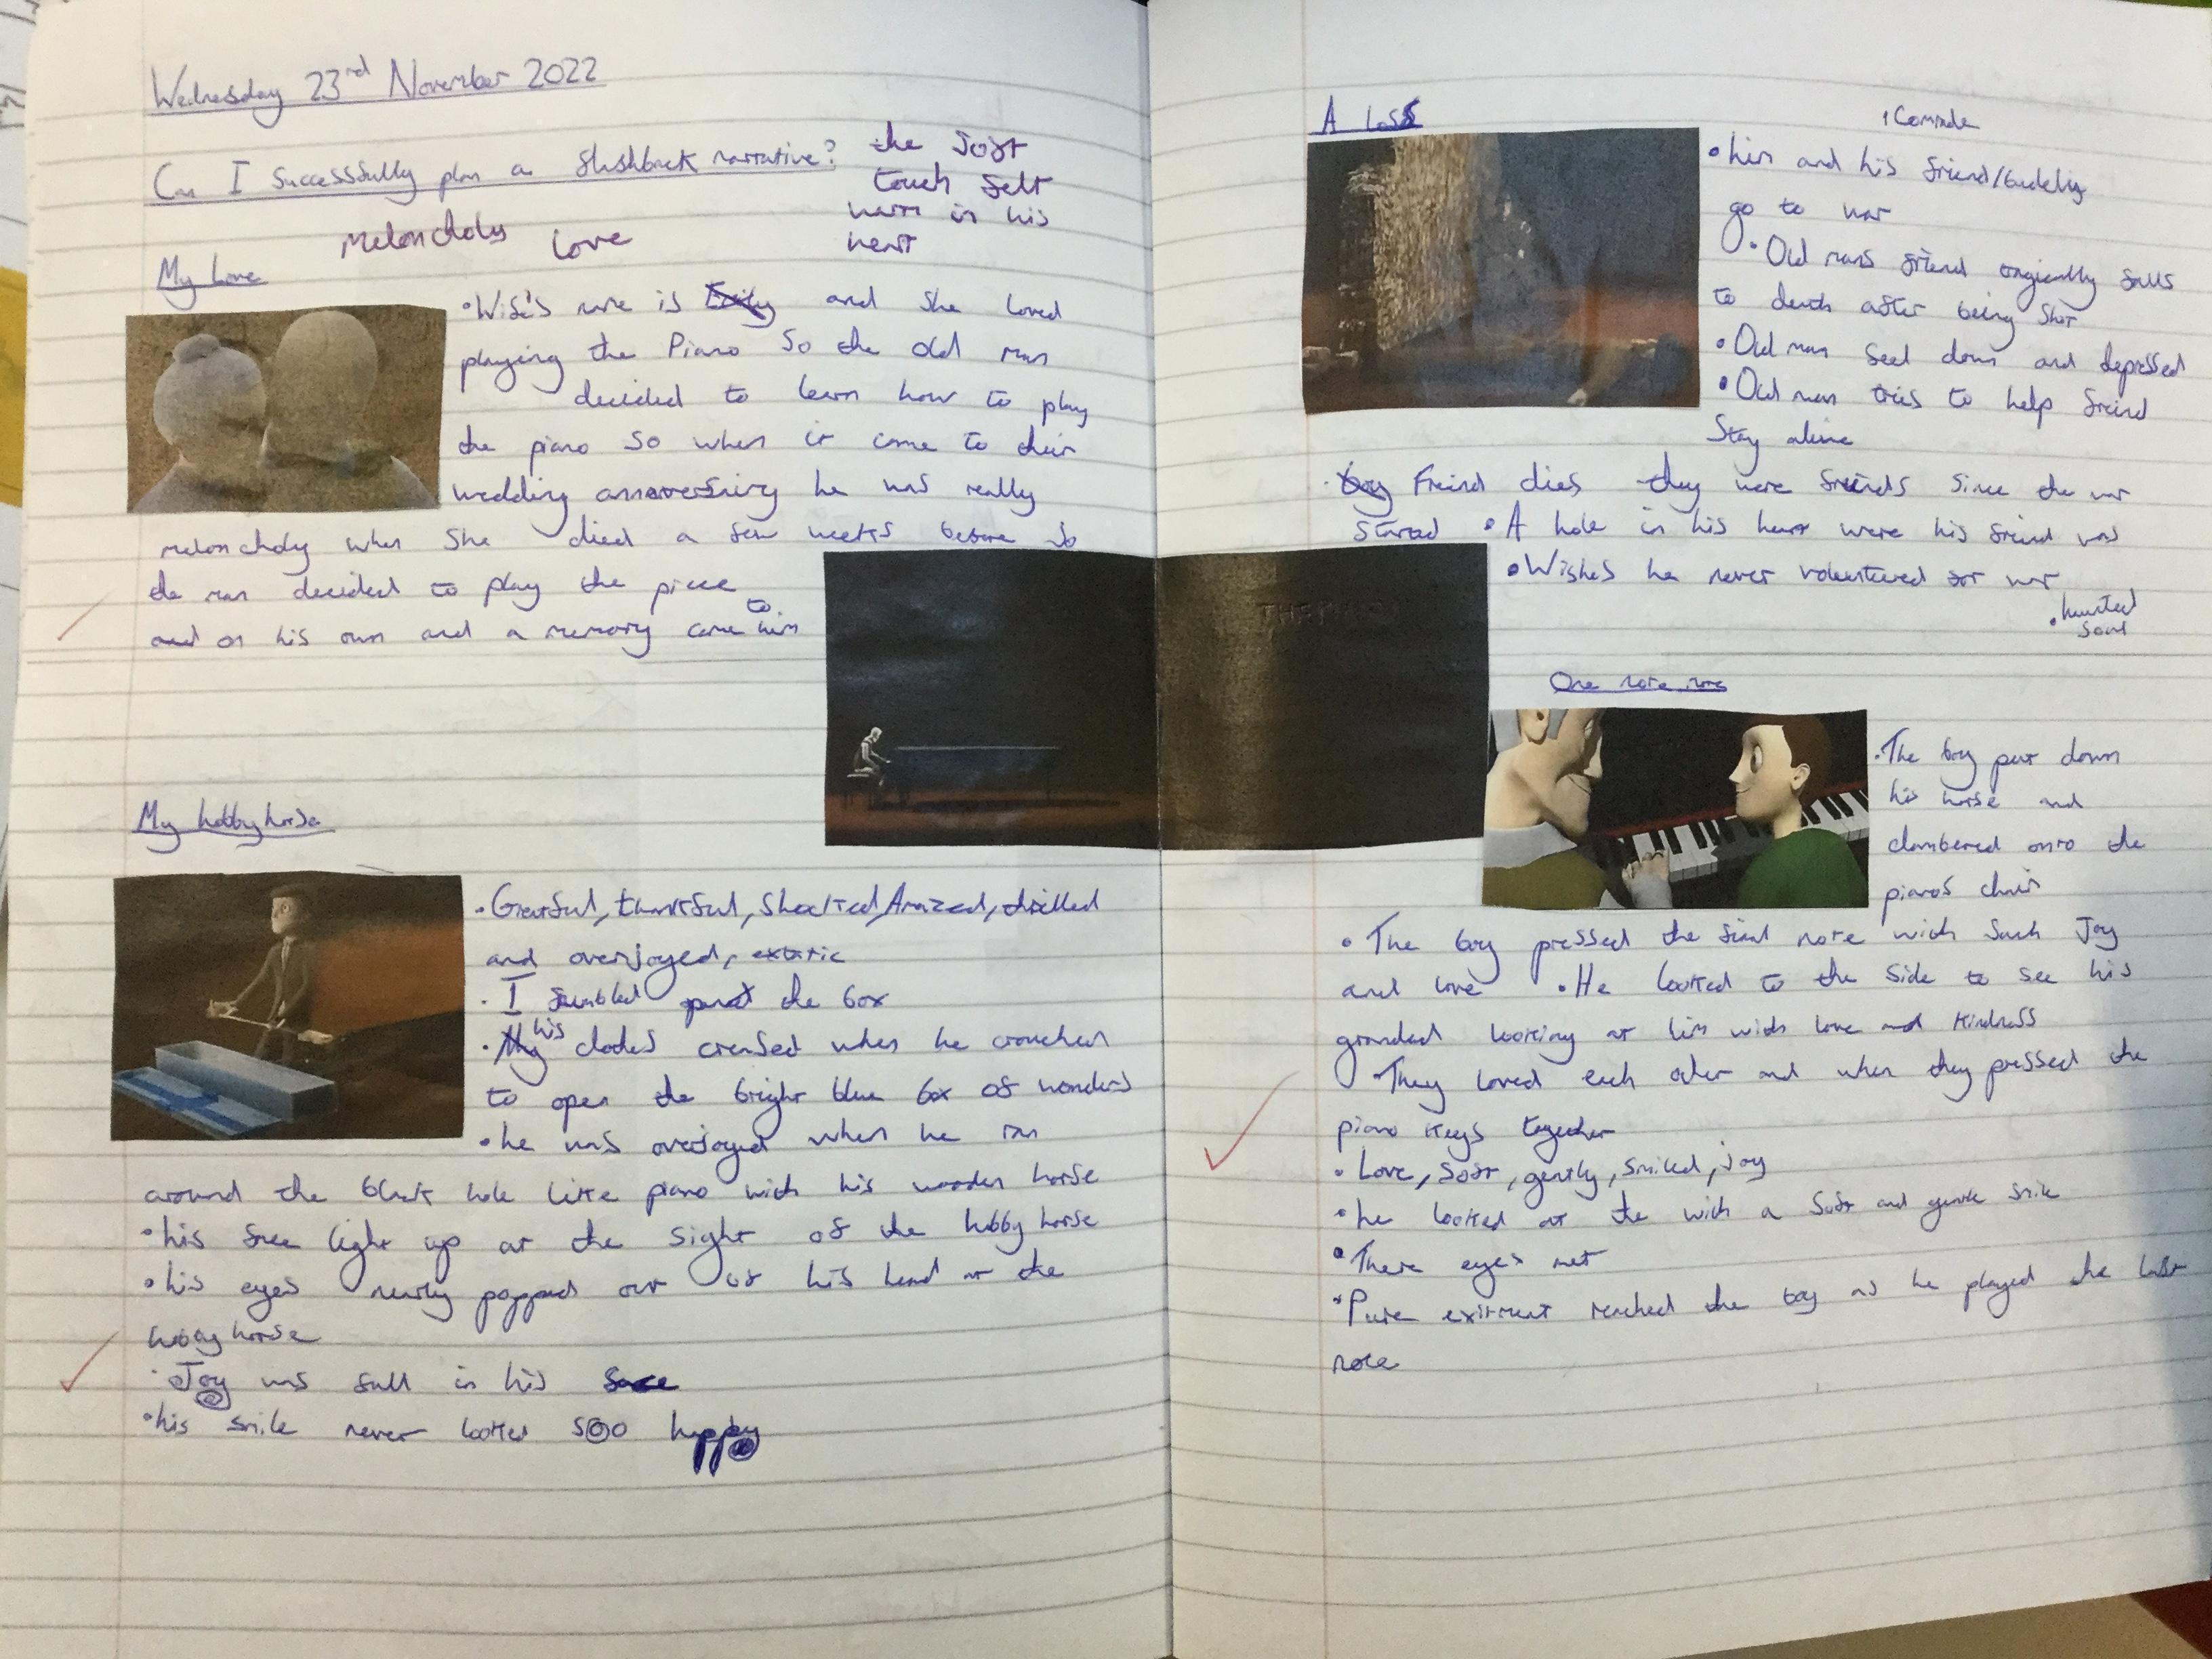 Wednesday 23rd November 2022
Can I successfully plan a flashback narrative?
the soft
touch felt
warm in his
heart
Melancholy love
My Love
• Wife's name is Emily and she loved
playing the Piano So the old man
decided to learn how to play
the piano so when it came to their
wedding he was really
meloncholy when she died a few weeks before so
the man decided to play the piece
and on his own and a memory came to him
My hobbyhorse
• Grateful, thankful, Shocked, Amazed, thrilled
and overjoyed, extatic
• I fumbled the box
• his clothes creased when he crouched
to open the bright blue box of wonders
• he was overjoyed when he ran
around the black hole like piano with his wooden horse
• his face light up at the sight of the hobby horse
• his eyes nearly popped out of his head at the
hobby horse
• Joy was full in his face
• his smile never looked soo happy
A loss
Comrade
• him and his friend/buddy
go to war
• Old mans friend tragically falls
to death after being shot
• Old man feel down and depressed
• Old man tries to help freind
Stay alive
• Freind dies they were freinds since the war
started • A hole in his heart were his freind was
• Wishes he never volentuered for war
• haunted
soul
THE PIANO
One note more
• The boy put down
his horse and
clambered onto the
pianos chair
• The boy pressed the final note with such Joy
and love • He looked to the side to see his
grandad looking at him with love and kindness
• They loved each other and when they pressed the
piano keys together
• Love, soft, gently, smiled, joy
• he looked at the with a soft and gentle smile
• There eyes met
• Pure exitment reached the boy as he played the last
note